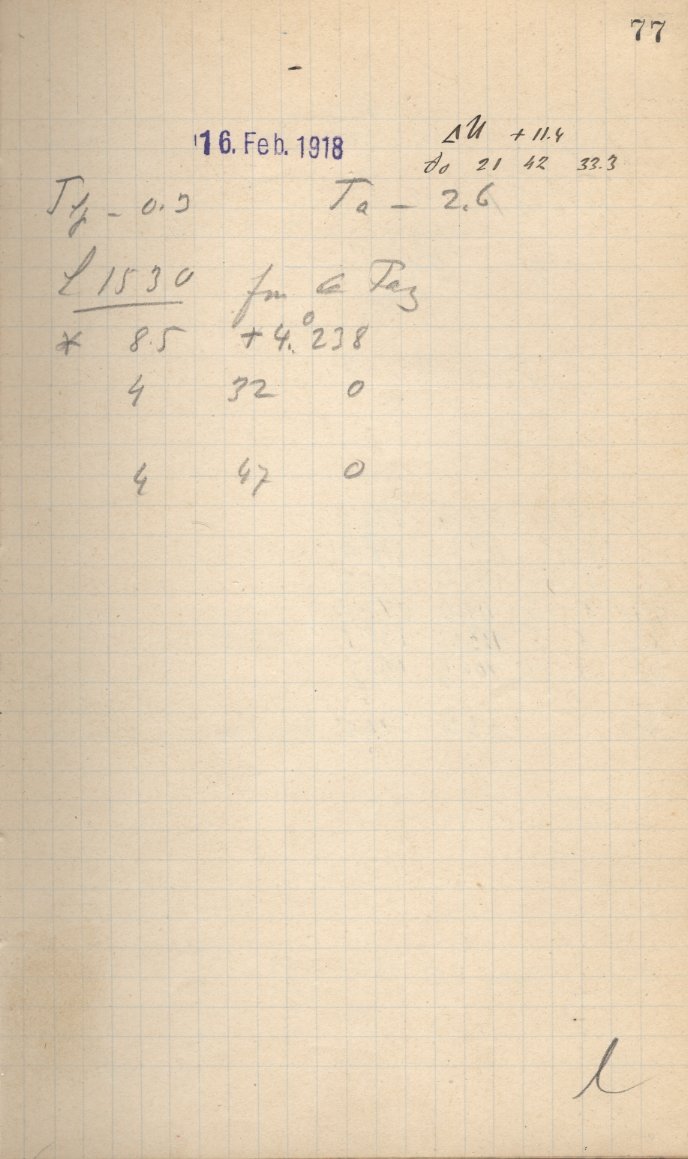 77
16. Feb. 1918
ΔU +11.4
θ₀ 21 42 33.3
- 0.3 Ta - 2.6
L 1530
* 8.5 +4.°238
4 32 0
4 47 0